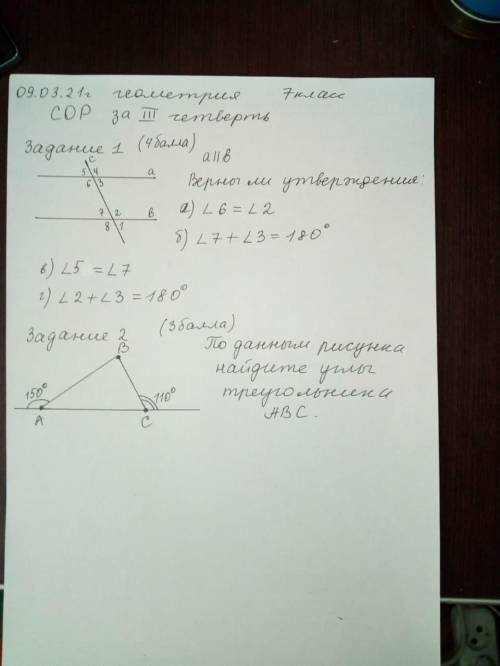 09.03.21г геометрия 7класс
СОР за III четверть
Задание 1 (4балла)
c
5 4 a
6 3
7 2 в
8 1
a||в
Верны ли утверждения:
а) ∠6 = ∠2
б) ∠7 + ∠3 = 180°
в) ∠5 = ∠7
г) ∠2 + ∠3 = 180°
Задание 2 (3балла)
B
150° 110°
A C
По данным рисунка
найдите углы
треугольника
ABC.